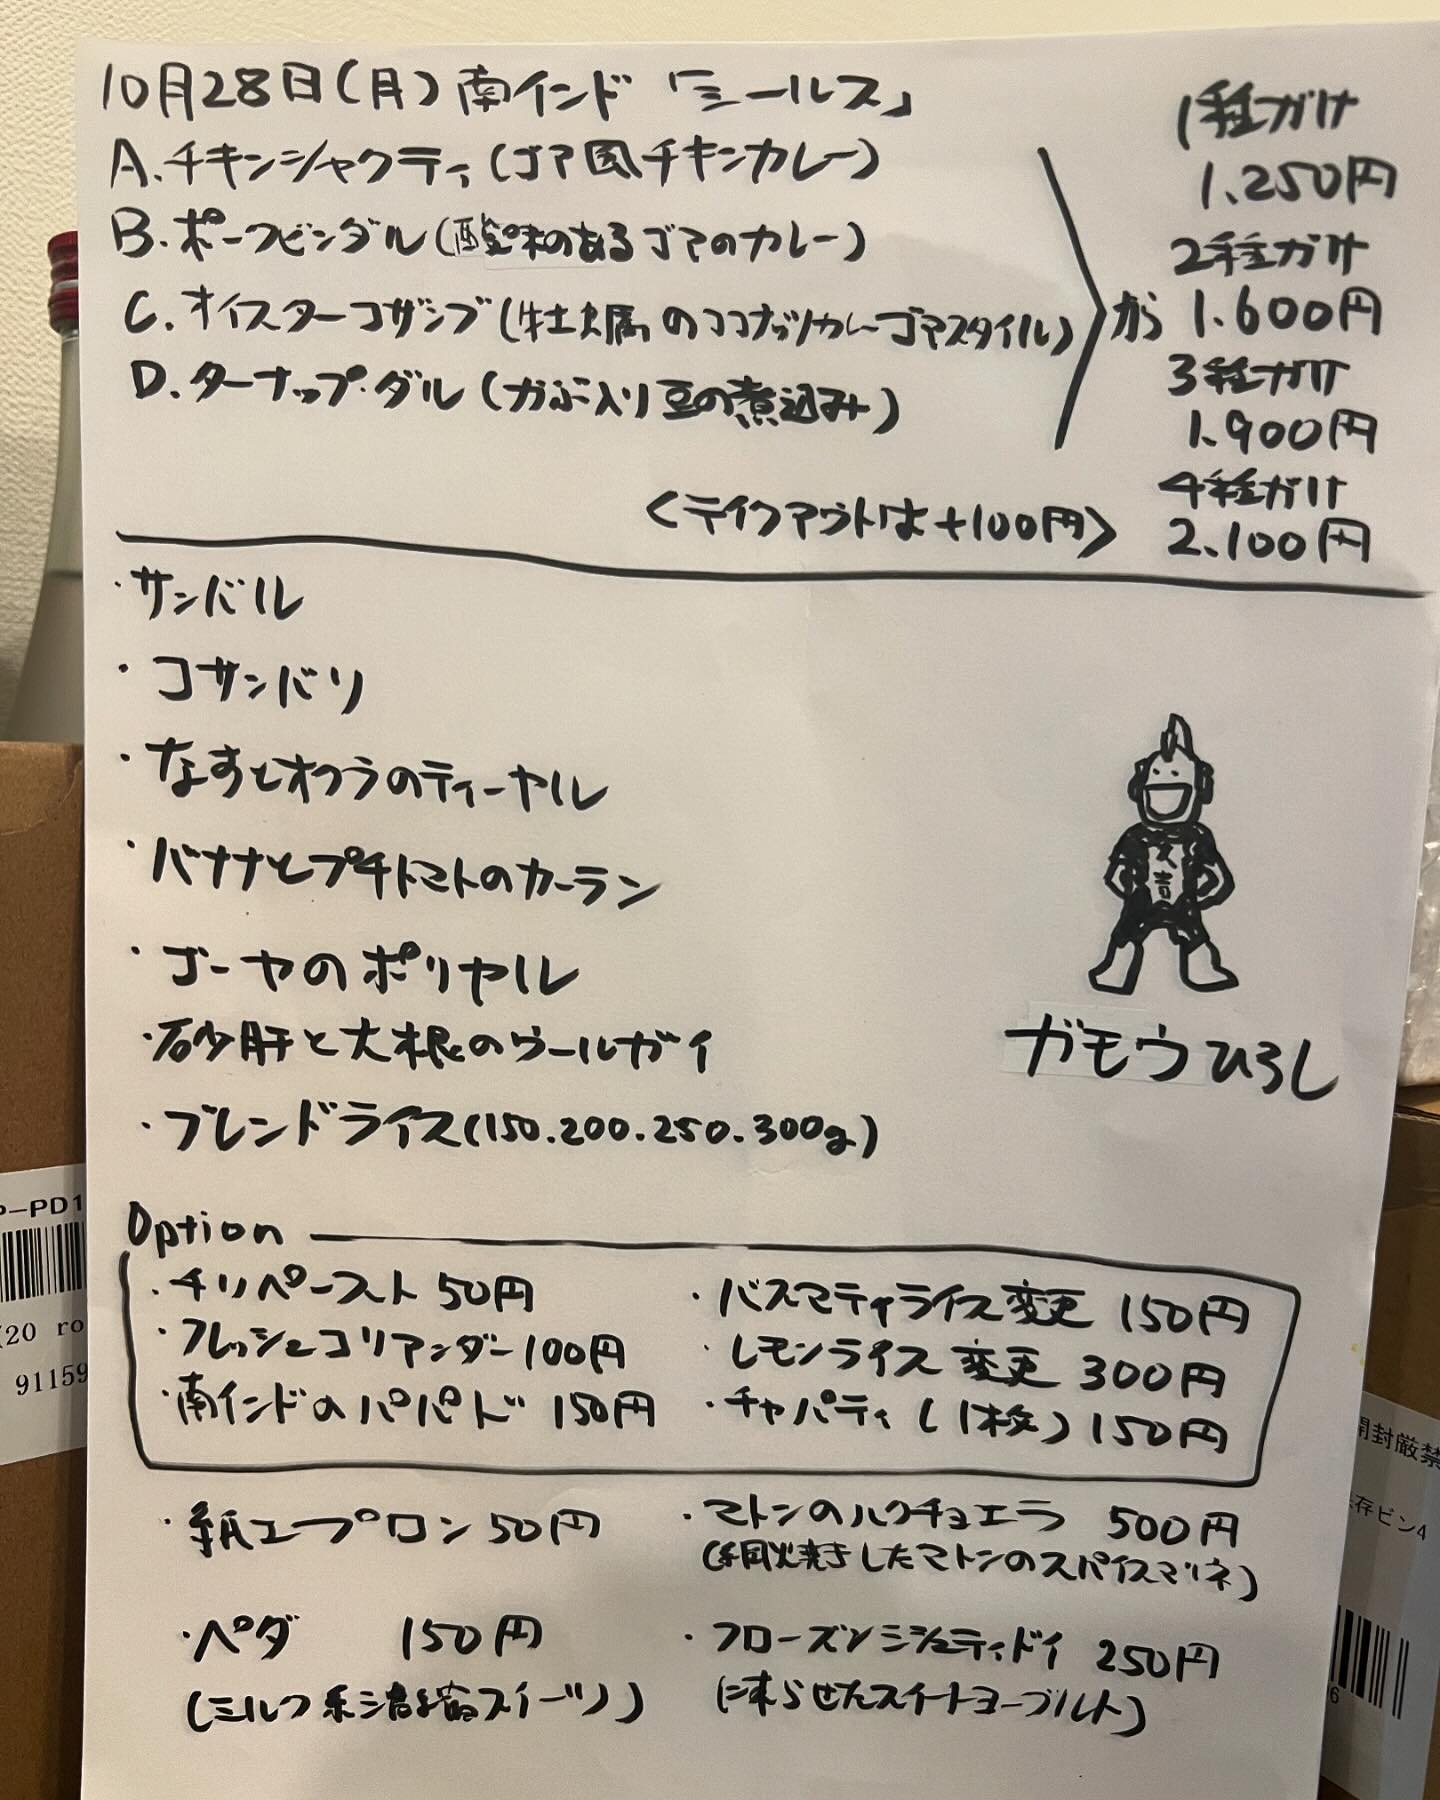 10月28日(月)南インド「ミールス」
A.チキンシャクティ(ゴア風チキンカレー)
B.ポークビンダル(酸味のあるゴアのカレー)
C.オイスターコザンブ(牡蠣のココナッツカレーゴアスタイル)
D.ターナップ・ダル(かぶ入り豆の煮込み)
から
1種がけ
1.250円
2種がけ
1.600円
3種がけ
1.900円
4種がけ
2.100円
<テイクアウトは+100円>
・サンバル
・コサンバリ
・なすとオクラのティーヤル
・バナナとプチトマトのカーラン
・ゴーヤのポリヤル
・砂肝と大根のウールガイ
・ブレンドライス(150.200.250.300g)
ガモウひろし
Option
・チリペースト 50円
・フレッシュコリアンダー100円
・南インドのパパド 150円
・バスマティライス変更 150円
・レモンライス変更 300円
・チャパティ(1枚)150円
・紙エプロン 50円
・マトンのハクチョエラ 500円
(網焼きしたマトンのスパイスマリネ)
・ペダ 150円
(ミルク系濃縮スイーツ)
・フローズンミシュティドイ 250円
(凍らせたスイートヨーグルト)
P-PD1
(20 ro
91159
開封厳禁
存ビン4